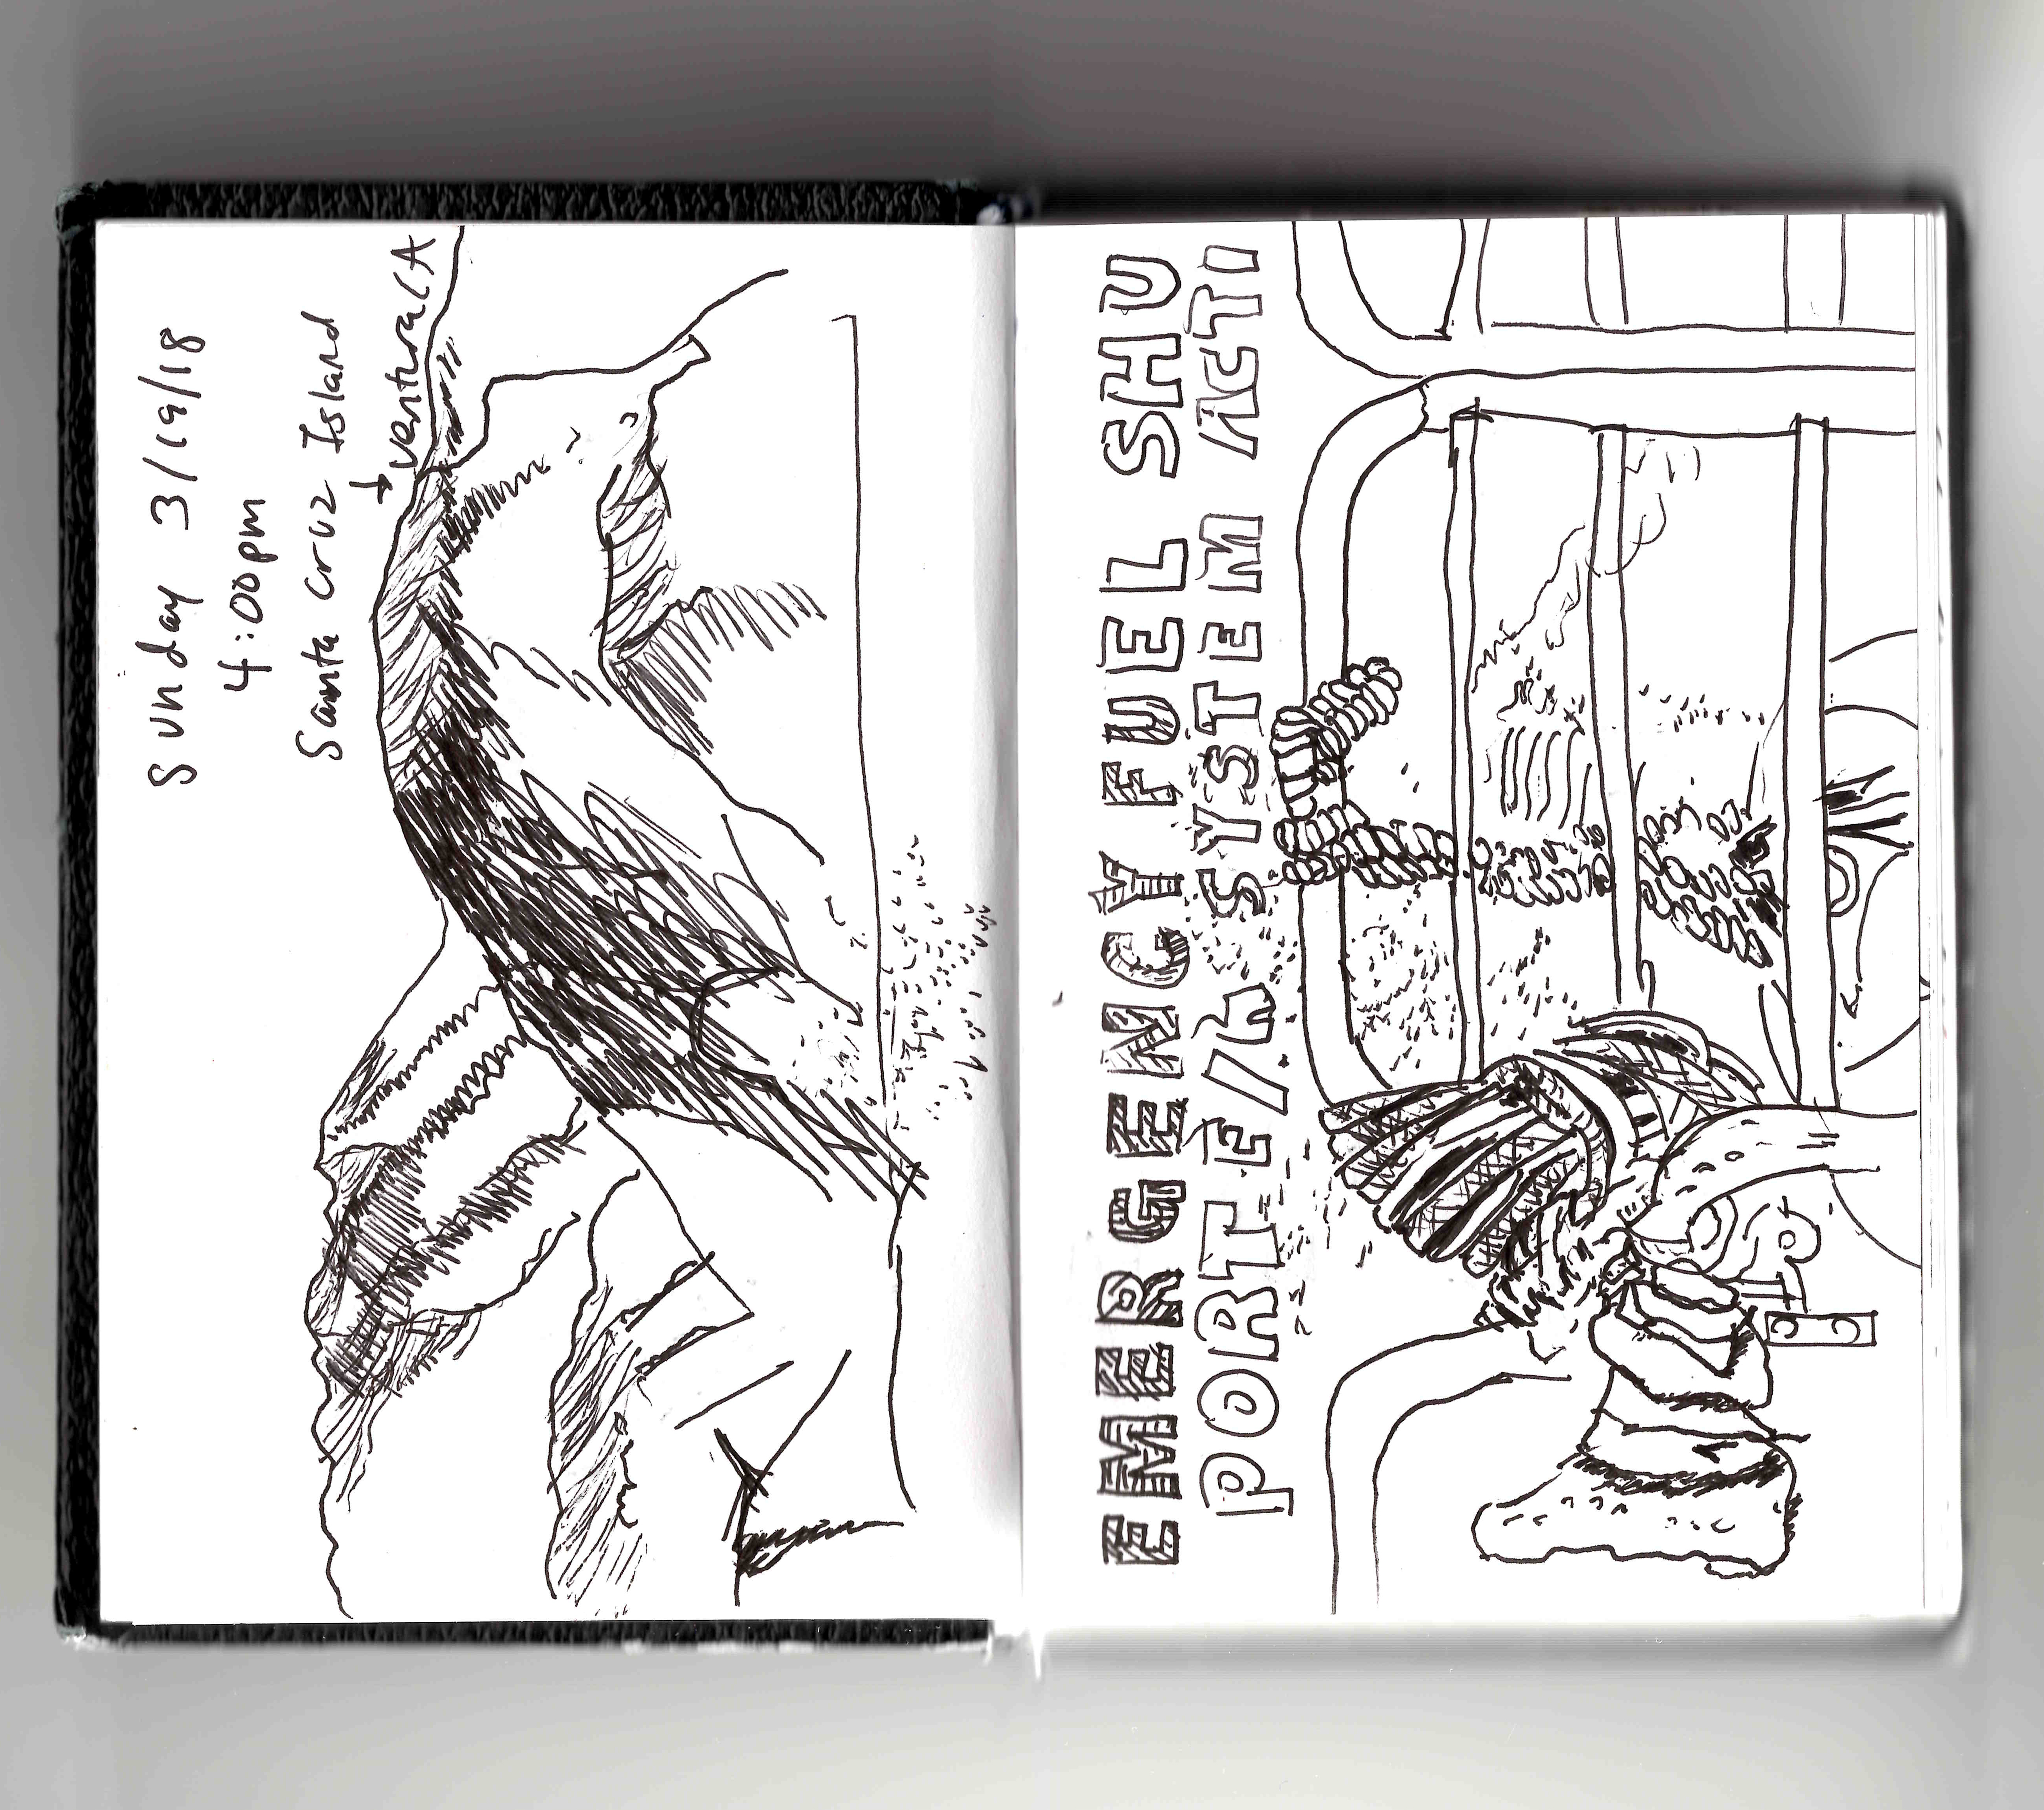 Sunday 3/19/18
4:00pm
Santa cruz Island
→ ventura CA
EMERGENCY FUEL SHU
PORT SYSTEM ACTI